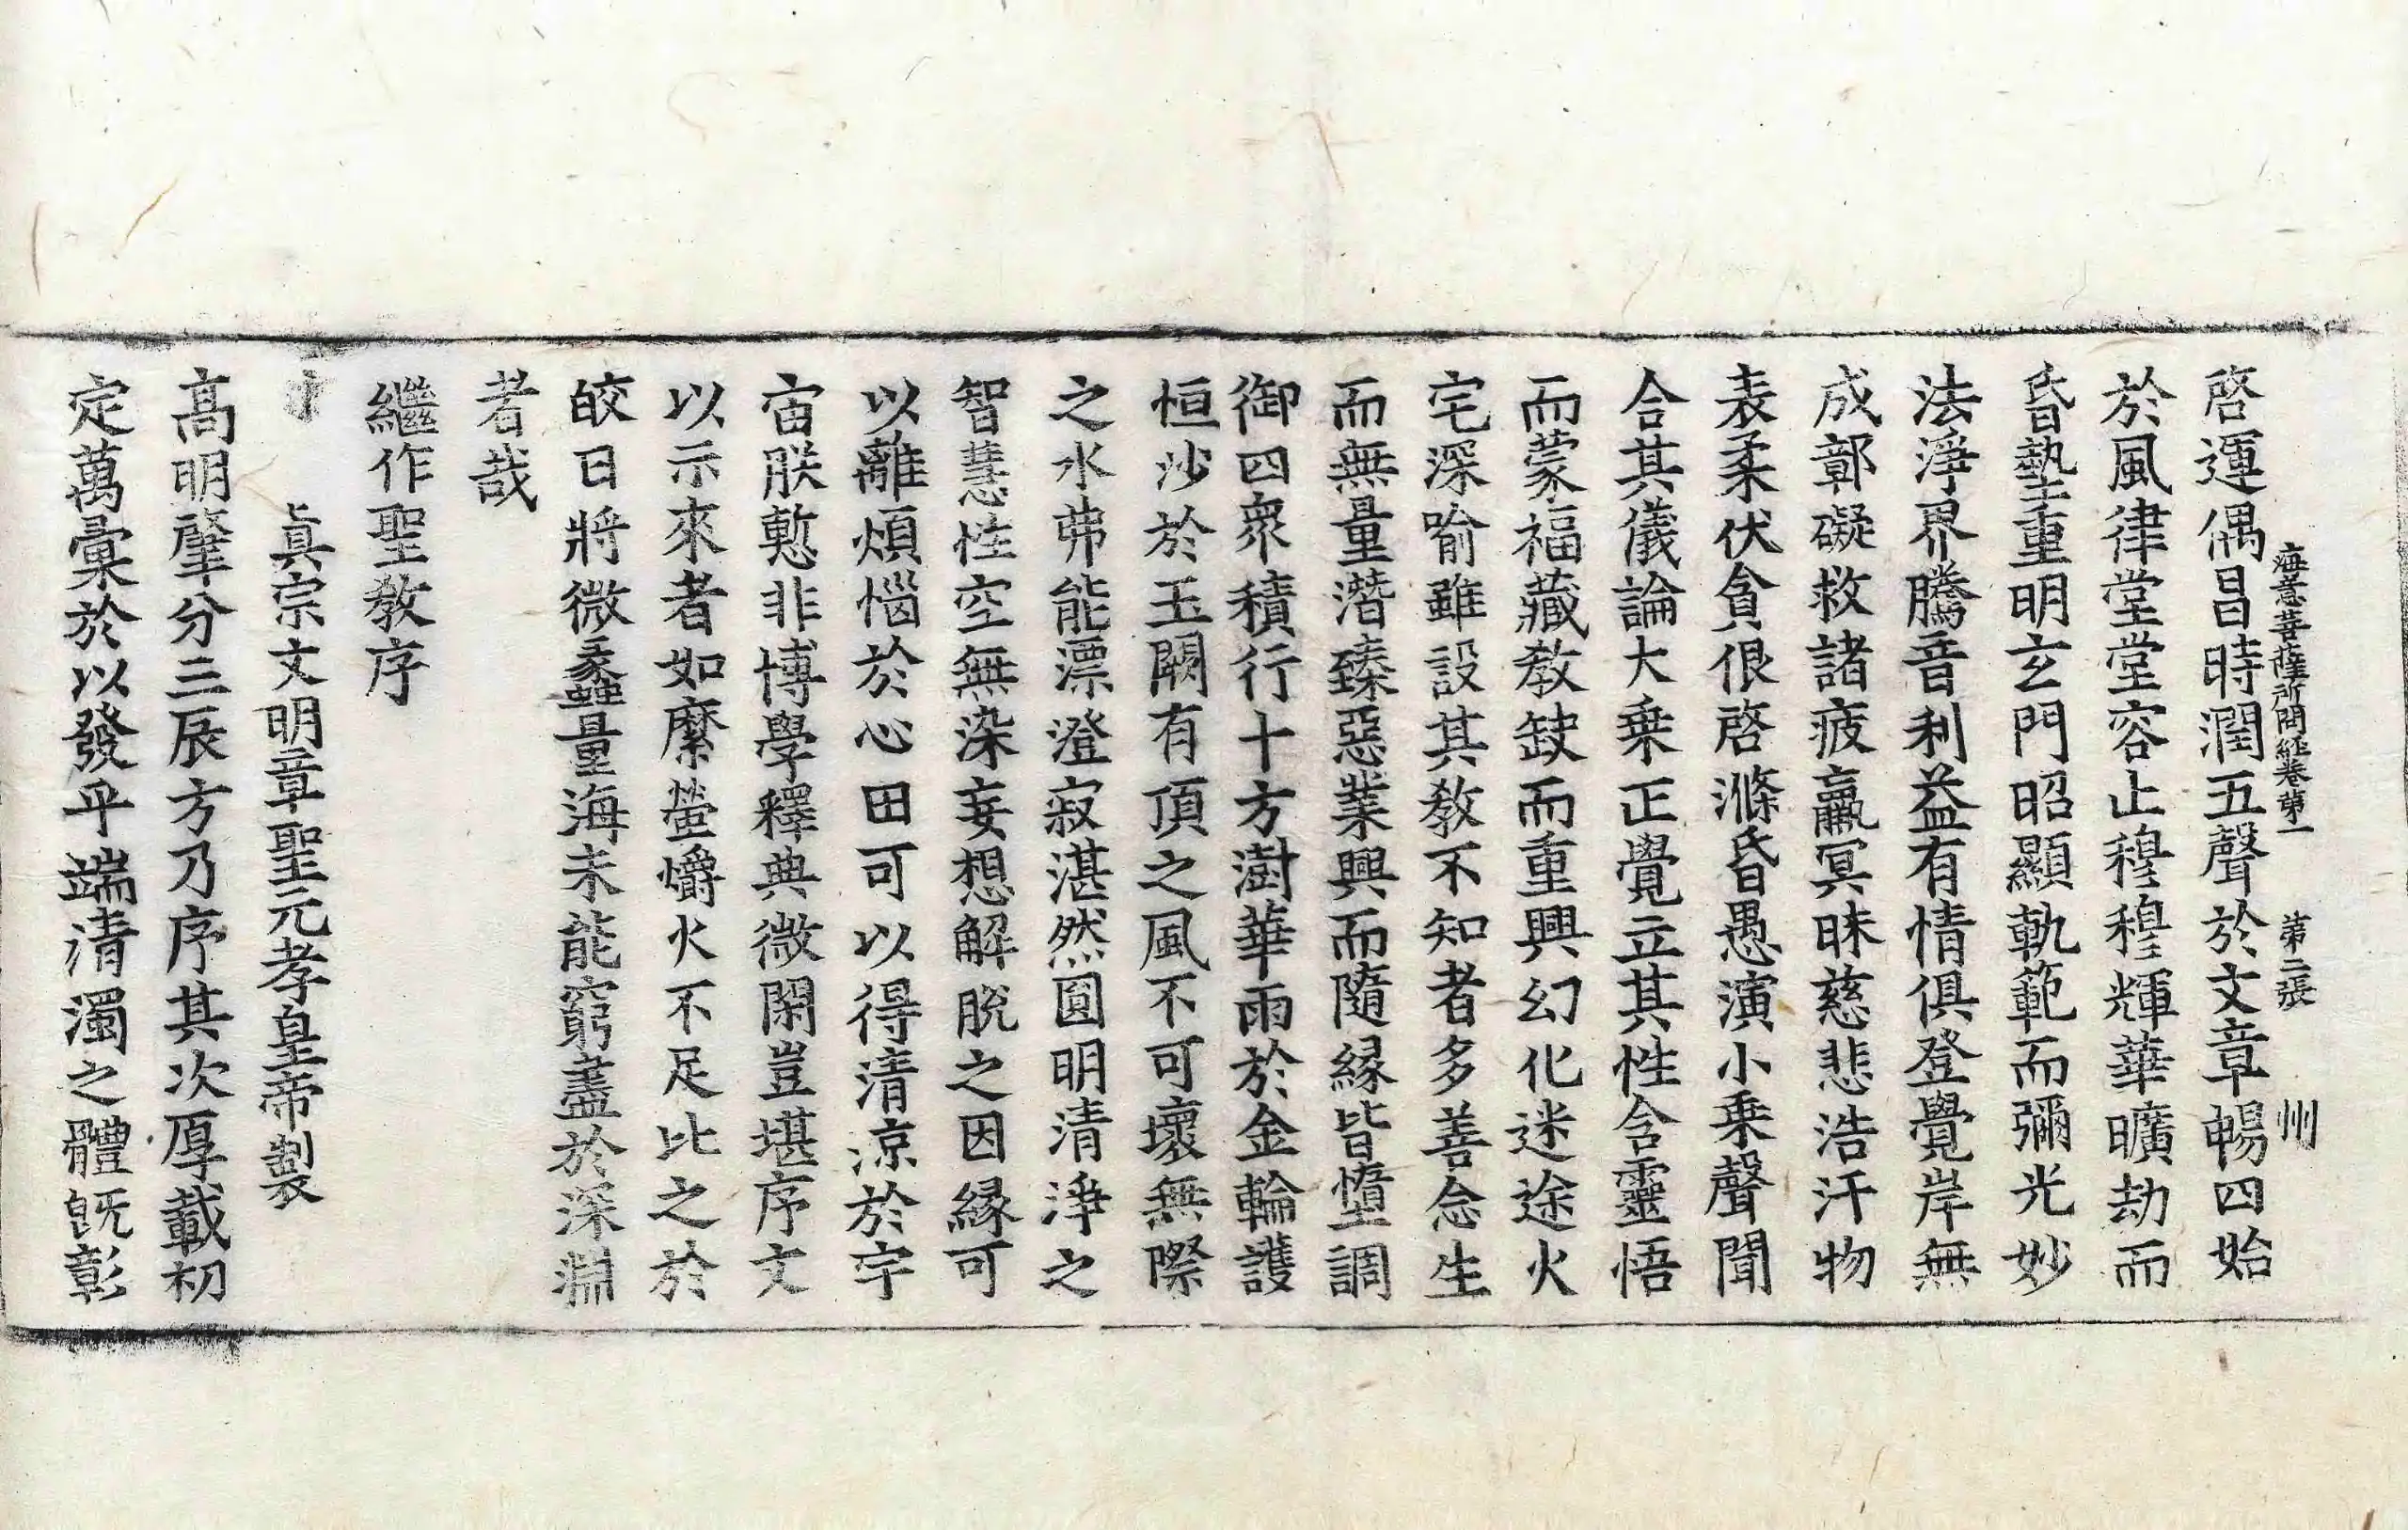 海意菩薩所問經卷第一 第二張 州
啓運偶昌時潤五聲於文章暢四始
於風律堂堂容止穆穆輝華曠劫而
昏墊重明玄門昭顯軌範而彌光妙
法淨界騰音利益有情俱登覺岸無
成鄣礙救諸疲羸冥昧慈悲浩汗物
表柔伏貪佷啓滌昏愚演小乗聲聞
合其儀論大乗正覺立其性含靈悟
而蒙福藏教缺而重興幻化迷途火
宅深喻雖設其教不知者多善念生
而無量潛臻惡業興而隨縁皆墮調
御四衆積行十方澍華雨於金輪護
恒沙於玉闕有頂之風不可壞無際
之水弗能漂澄寂湛然圓明清淨之
智慧性空無染妄想解脫之因縁可
以離煩惱於心田可以得清涼於宇
宙朕慙非博學釋典微閑豈堪序文
以示來者如縻螢爝火不足比之於
皎日將微蠡量海未能窮盡於深淵
者哉
繼作聖教序
眞宗文明章聖元孝皇帝製
髙明肇分三辰方乃序其次厚載初
定萬彙於以發乎端清濁之體旣彰